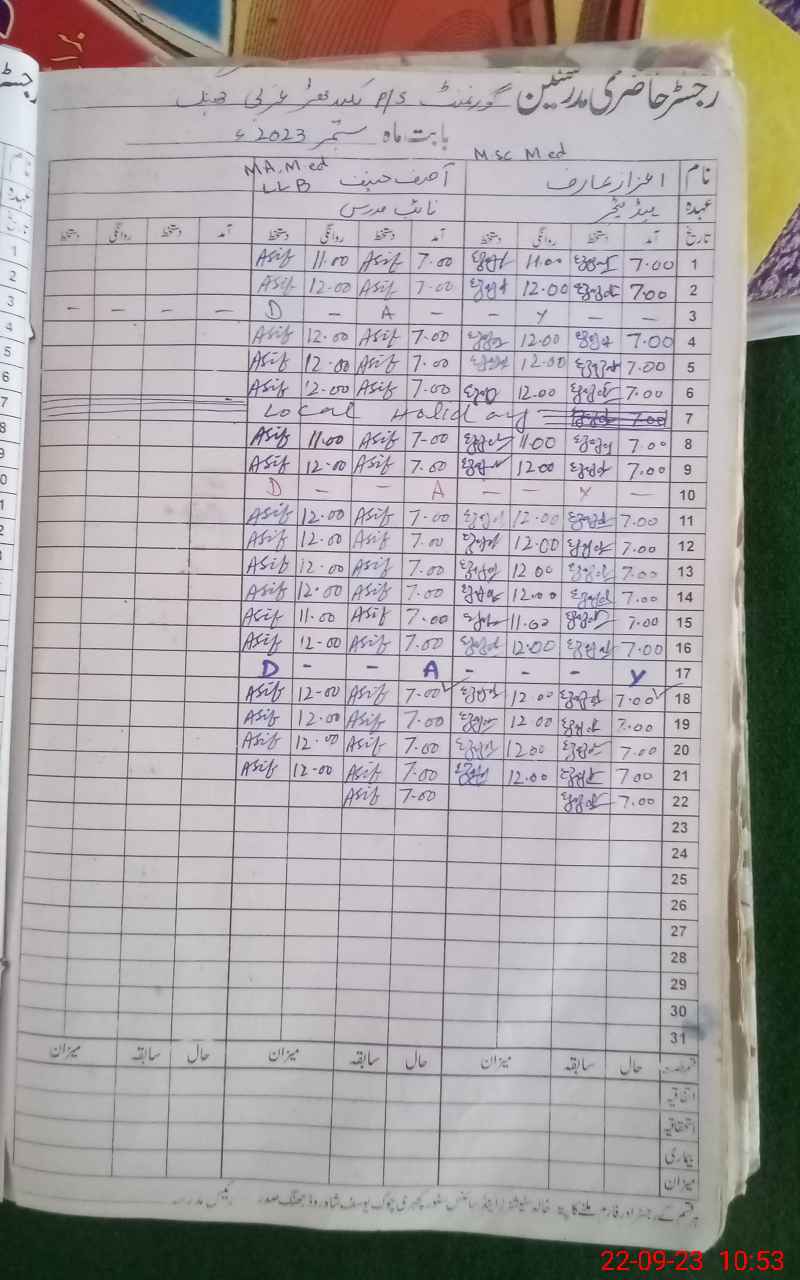 رجسٹر حاضری مدرسین گورنمنٹ P/S
بابت ماہ ستمبر 2023ء
نام اعزاز عارف M.Sc M.ed آصف حنیف M.A, M.ed LLB
عہدہ ہیڈ ٹیچر نائب مدرس
تاریخ آمد دستخط روانگی دستخط آمد دستخط روانگی دستخط آمد دستخط روانگی دستخط
1 7.00 11.00 7.00 Asif 11.00 Asif
2 7.00 12.00 7.00 Asif 12.00 Asif
3 - - Y - - A - D - - - -
4 7.00 12.00 7.00 Asif 12.00 Asif
5 7.00 12.00 7.00 Asif 12.00 Asif
6 7.00 12.00 7.00 Asif 12.00 Asif
7 7.00 Local Holiday
8 7.00 11.00 7.00 Asif 11.00 Asif
9 7.00 12.00 7.00 Asif 12.00 Asif
10 - Y - - A - - D
11 7.00 12.00 7.00 Asif 12.00 Asif
12 7.00 12.00 7.00 Asif 12.00 Asif
13 7.00 12.00 7.00 Asif 12.00 Asif
14 7.00 12.00 7.00 Asif 12.00 Asif
15 7.00 11.00 7.00 Asif 11.00 Asif
16 7.00 12.00 7.00 Asif 12.00 Asif
17 Y - - - A - - D
18 7.00 12.00 7.00 Asif 12.00 Asif
19 7.00 12.00 7.00 Asif 12.00 Asif
20 7.00 12.00 7.00 Asif 12.00 Asif
21 7.00 12.00 7.00 Asif 12.00 Asif
22 7.00 7.00 Asif
23
24
25
26
27
28
29
30
31
حال سابقہ میزان حال سابقہ میزان حال سابقہ میزان
اتفاقیہ
استحقاقیہ
بیماری
میزان
ہر قسم کے رجسٹر اور فارم ملنے کا پتہ خالد سٹیشنرز اینڈ سائنس سٹور کچہری چوک یوسف شاہ روڈ جھنگ صدر رئیس مدرسہ
22-09-23 10:53